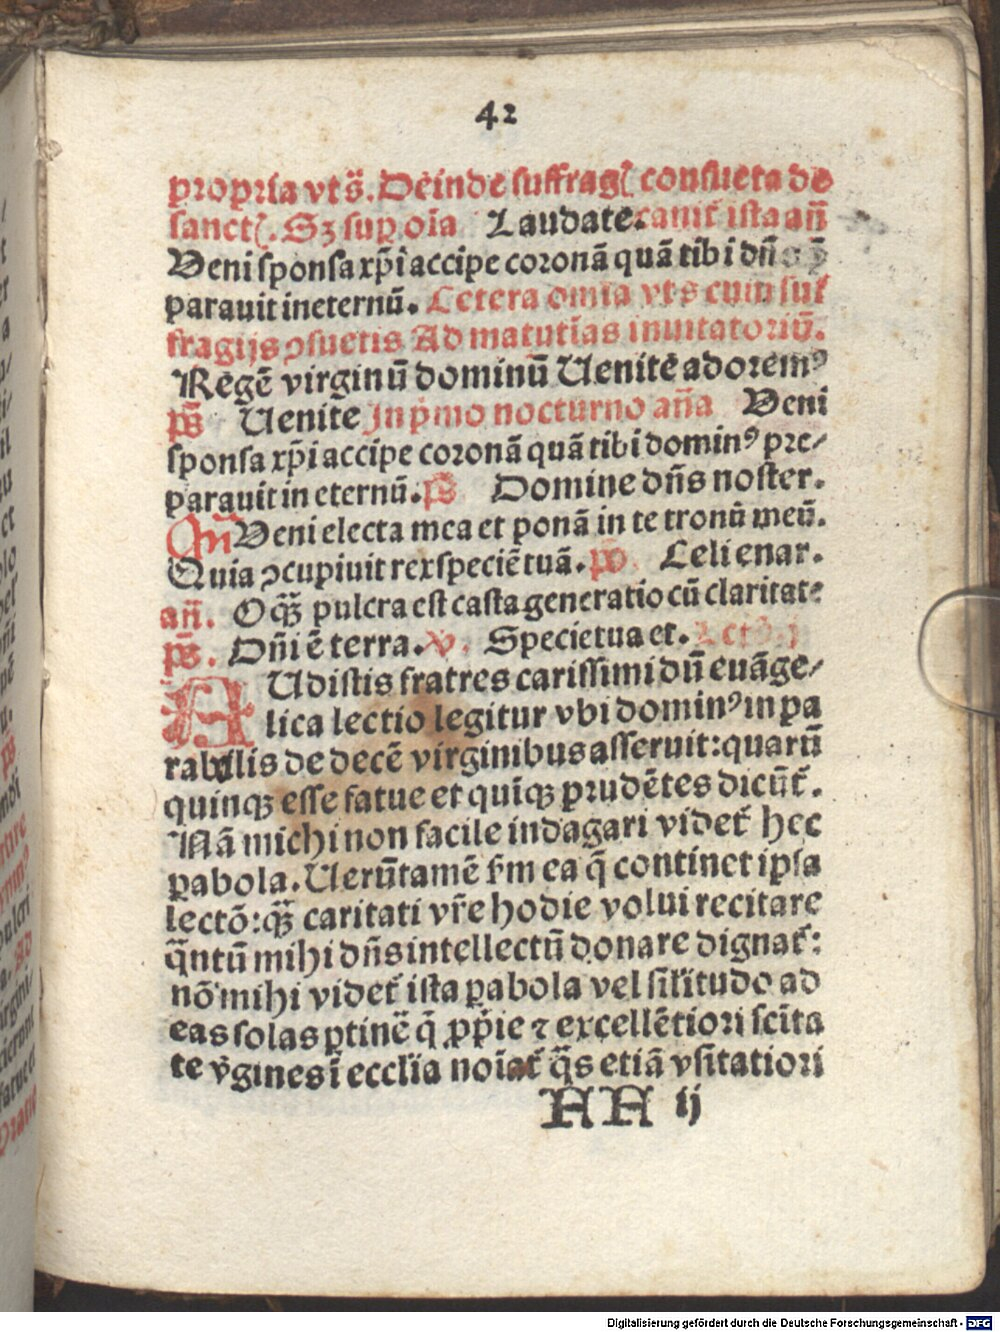 42
propria vts̄. Deinde suffragꝭ consueta de
sanctꝭ. Sꝫ sup oīa Laudate. canit᷑ ista an̄
Veni sponsa xp̄i accipe coronā quā tibi dn̄s p̄
parauit in eternū. Cetera omīa vts cum suf
fragijs ꝯsuetis Ad matutīas inuitatoriū.
Regē virginū dominū Uenite adoremꝰ
ps̄ Uenite In p̄mo nocturno an̄a Veni
sponsa xp̄i accipe coronā quā tibi dominꝰ pre/
parauit in eternū. ps̄ Domine dn̄s noster.
Veni electa mea et ponā in te tronū meū.
Quia ꝯcupiuit rex speciē tuā. ps̄. Celi enar.
an̄. O qꝫ̄ pulcra est casta generatio cū claritate
ps̄. Dn̄i ē terra. v. Specie tua et. Lctō. j
AUdistis fratres carissimi dū euāge/
lica lectio legitur vbi dominꝰ in pa
rabolis de decē virginibus asseruit: quarū
quinqꝫ esse fatue et quiqꝫ prudētes dicūt᷑.
Nā michi non facile indagari videt᷑ hec
ꝑabola. Uerūtamē ẜm ea q̄ continet ipsa
lectō: qꝫ̄ caritati vr̄e hodie volui recitare
q̄ntū mihi dn̄s intellectū donare dignat᷑:
nō mihi videt᷑ ista ꝑabola vel silitudo ad
eas solas ꝑtinē q̄ ꝓp̄ie ⁊ excellētiori scīta
te v̄gines ī ecclīa noīat᷑ q̄s etiā vsitatiori
AA ij
Digitalisierung gefördert durch die Deutsche Forschungsgemeinschaft - DFG